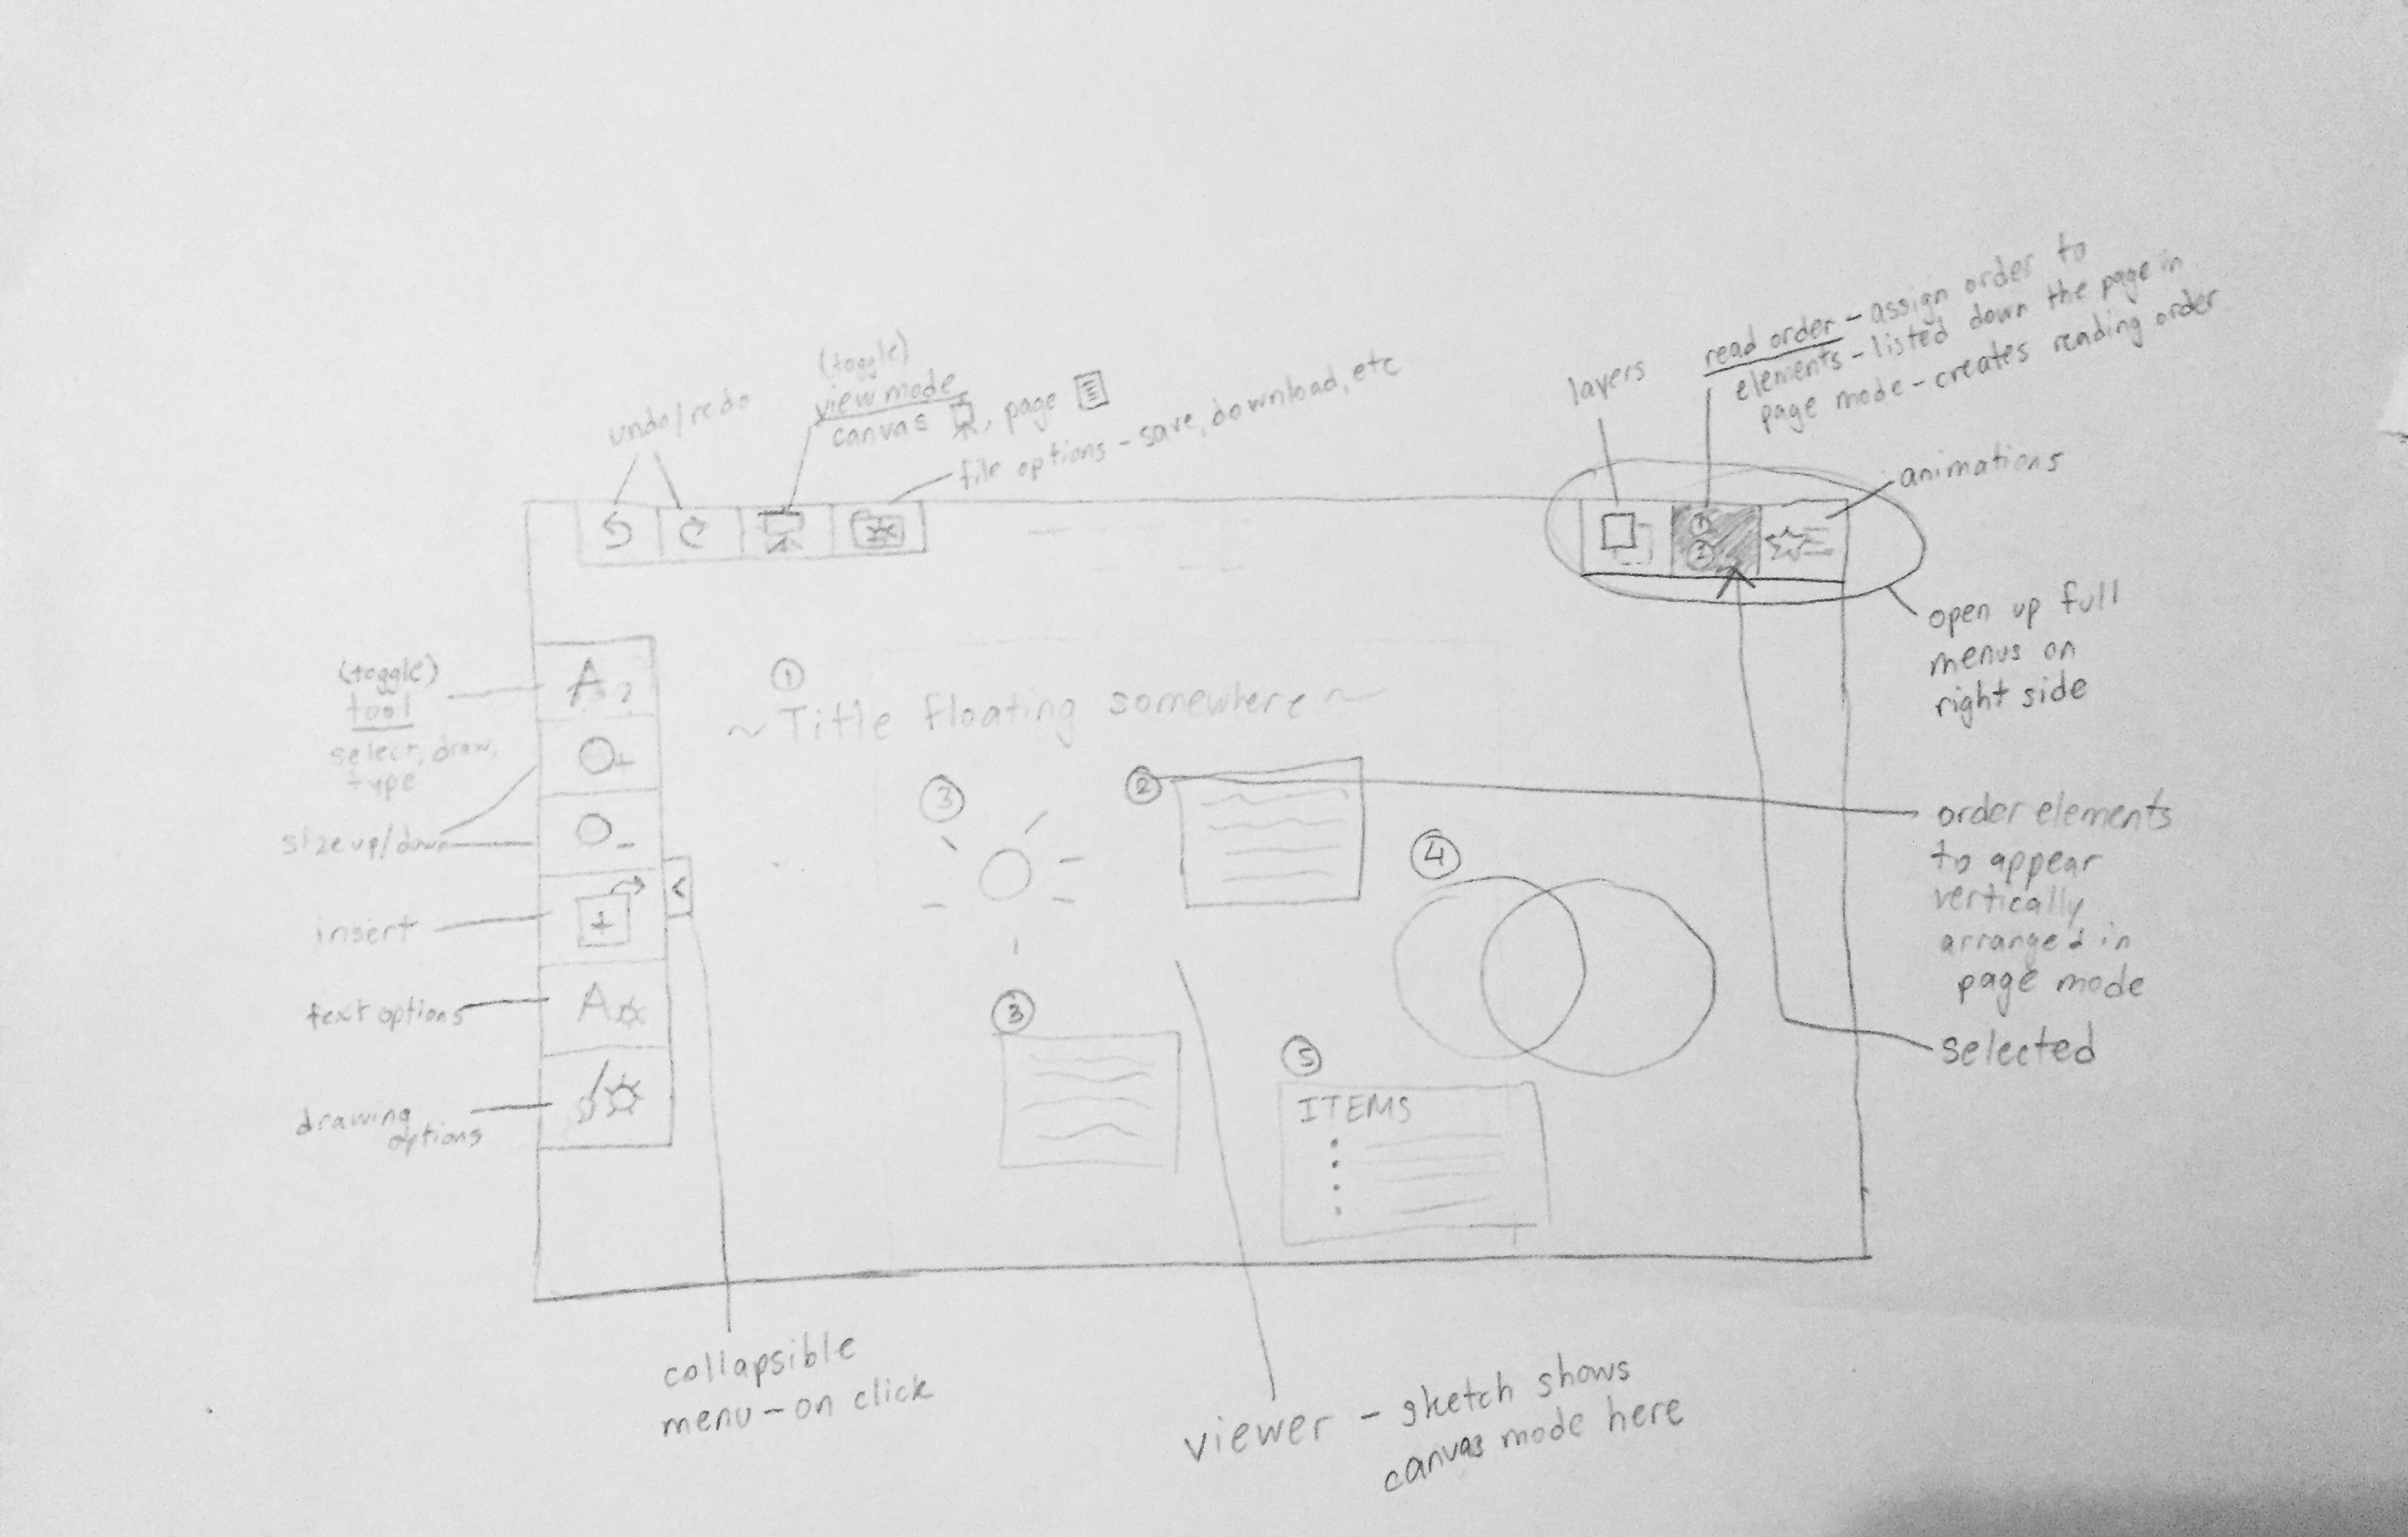 undo/redo
(toggle)
view mode
canvas , page
file options - save, download, etc
layers
read order - assign order to
elements - listed down the page in
page mode - creates reading order
animations
1
2
open up full
menus on
right side
(toggle)
tool
select, draw,
type
size up/down
insert
text options
drawing
options
A
+
-
+
<
A
1
~ Title floating somewhere ~
3
2
4
3
5
ITEMS
order elements
to appear
vertically
arranged in
page mode
selected
collapsible
menu - on click
viewer - sketch shows
canvas mode here